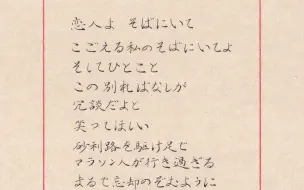 恋人よ そばにいて
こごえる私のそばにいてよ
そしてひとこと
この別ればなしが
冗談だよと
笑ってほしい
砂利路を駆け足で
マラソン人が行き過ぎる
まるで忘却のぞむように